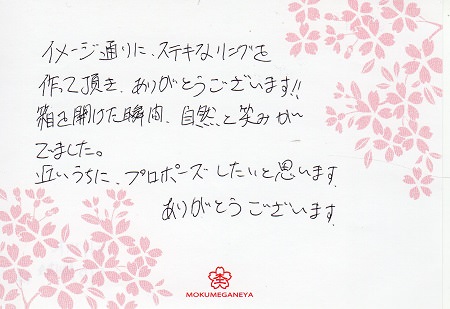 イメージ通りに、ステキなリングを
作って頂き、ありがとうございます!!
箱を開けた瞬間、自然と笑みが
でました。
近いうちに、プロポーズしたいと思います。
ありがとうございます。
MOKUMEGANEYA